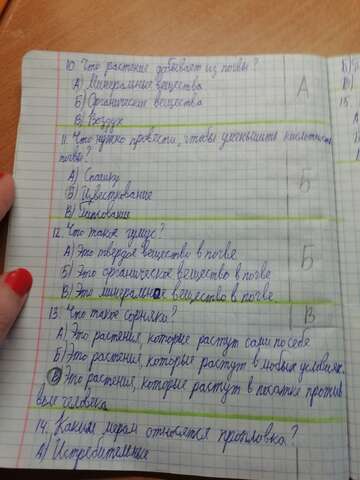 10. Что растение добывает из почвы?
А) Минеральные вещества
Б) Органические вещества
В) Воздух
А
11. Что нужно провести, чтобы уменьшить кислотность
почвы?
А) Вспашку
Б) Известкование
В) Гипсование
Б
12. Что такое гумус?
А) Это твёрдое вещество в почве
Б) Это органическое вещество в почве
В) Это минеральное вещество в почве
Б
13. Что такое сорняки?
А) Это растения, которые растут сами по себе
Б) Это растения, которые растут в любых условиях
В) Это растения, которые растут в посатке против
воле человека
В
14. Каким мерам относятся прополовка?
А) Истребительные